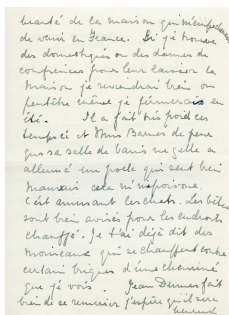 beauté de la maison qui m'empêchera
de venir en France. Si je trouve
des domestiques ou des dames de
confiance pour leur laisser la
maison je reviendrai bien ou
peutêtre même je fermerais en
été. Il a fait très froid ces
temps ci et Mme Barnes de peur
que sa salle de bains ne gelle a
allumé un poele qui sent bien
mauvais cela m'empoisonne.
C'est amusant les chats. Les bêtes
sont bien avisés pour les endroits
chauffés. Je t'ai déjà dit des
moineaux qui se chauffent contre
certains briques d'une cheminée
que je vois. Jean fait
bien de se remarier j'espère qu'il sera
heureux